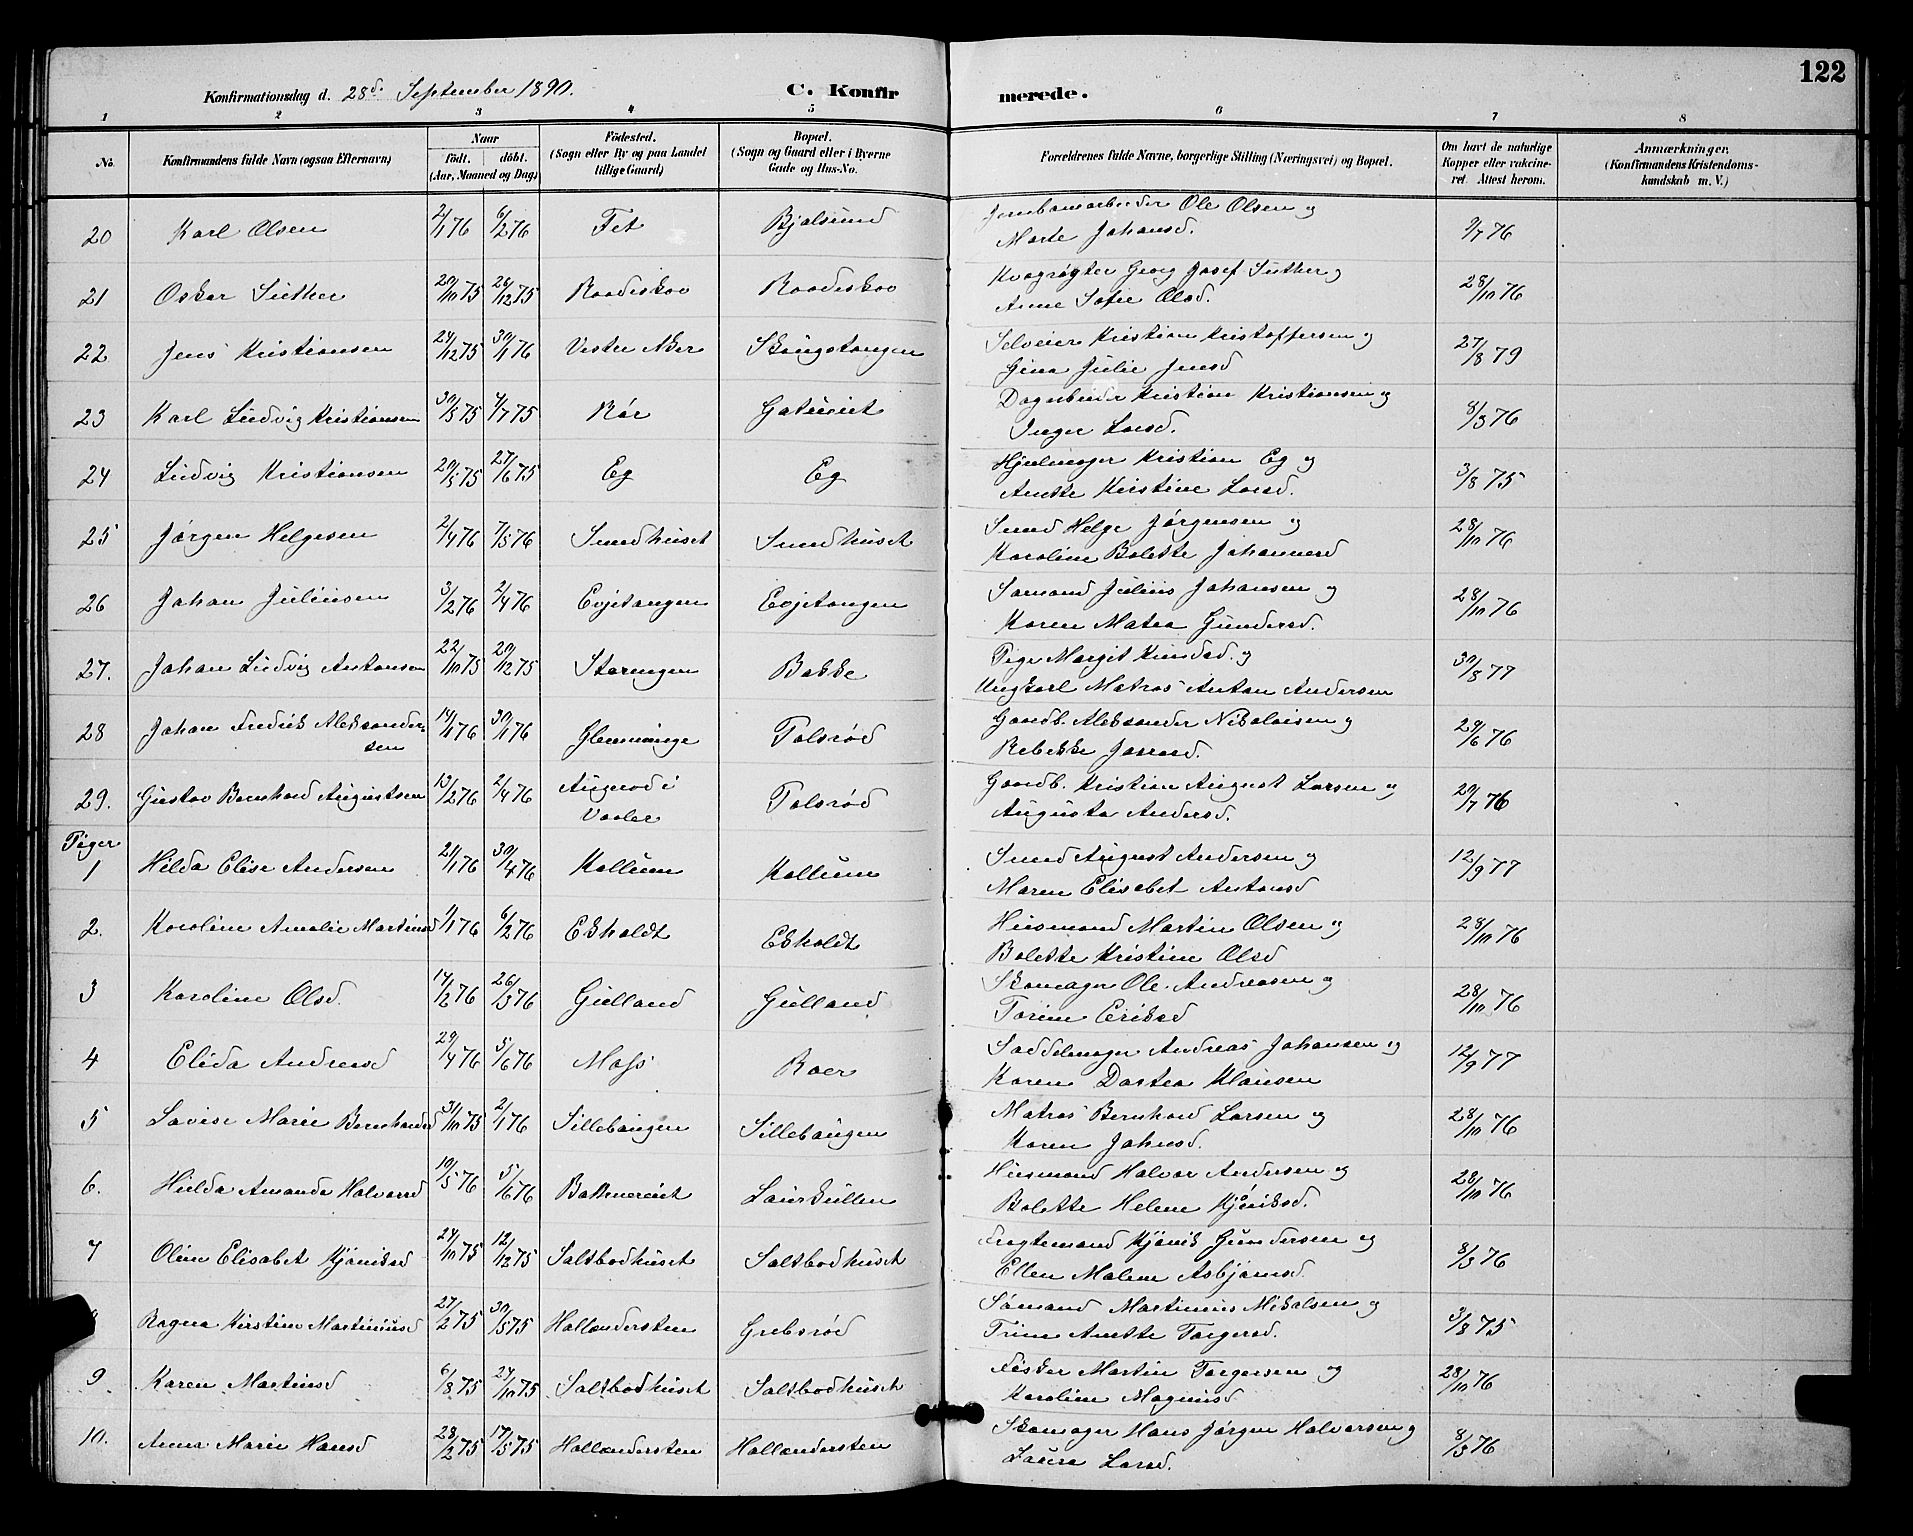 122
Konfirmationsdag d. 28d. September 1890. C. Konfir merede.
1 2 3 4 5 6 7 8
No. Konfirmandens fulde Navn (ogsaa Efternavn) Naar födt. döbt. (Aar, Maaned og Dag) Födested. (Sogn eller By og paa Landet tillige Gaard) Bopæl. (Sogn og Gaard eller i Byerne Gade og Hus-No. Forældrenes fulde Navne, borgerlige Stilling (Næringsvei) og Bopæl. Om havt de naturlige Kopper eller vakcineret. Attest herom. Anmærkninger. (Konfirmandens Kristendomskundskab m. V.)
20 Karl Olsen 2/1 76 6/2 76 Fet Bjalsund Jernbanearbeider Ole Olsen og
Marte Johansd. 9/7 76
21 Oskar Suther 20/10 75 26/12 75 Raadeskov Raadeskov Kvægrøgter Georg Josef Suther og
Anne Sofie Olsd. 28/10 76
22 Jens Kristiansen 24/12 75 30/1 76 Vestre Aker Skaugstangen Selveier Kristian Kristoffersen og
Gina Julie Jensd 27/8 79
23 Karl Ludvig Kristiansen 30/5 75 4/7 75 Rør Gatuviet Dagarbeider Kristian Kristiansen og
Inger Larsd. 8/3 76
24 Ludvig Kristiansen 20/5 75 27/6 75 Eg Eg Hjulmager Kristian Eg og
Anette Kristine Larsd. 3/8 75
25 Jørgen Helgesen 2/4 76 7/5 76 Smedhuset Smedhuset Smed Helge Jørgensen og
Karoline Bolette Johannesd 28/10 76
26 Johan Juliusen 3/2 76 2/4 76 Evjetangen Evjetangen Sømand Julius Johansen og
Karen Matea Gundersd. 28/10 76
27. Johan Ludvig Antonsen 22/10 75 20/12 75 Staringen Bakke Pige Margit og
Ungkarl Matros Anton Andersen 30/8 77
28 Johan Fredrik Aleksandersen 14/1 76 30/1 76 Glemminge Tolsrød Gaardb. Aleksander Nikolaisen og
Rebekke 29/6 76
29. Gustav Bernhard Augustsen 13/2 76 2/4 76 Augerod i Vaaler Tolsrød Gaardb. Kristian August Larsen og
Augusta Andersd. 20/7 76
Piger
1 Hilda Elise Andersen 21/1 76 30/4 76 Kollum Kollum Smed August Andersen og
Maren Elisabet Antonsd 12/9 77
2. Karoline Amalie Martinsd 1/1 76 6/2 76 Ekholdt Ekholdt Husmand Martin Olsen og
Bolette Kristine Olsd 28/10 76
3 Karoline Olsd. 14/2 76 26/3 76 Gulland Gulland Skomager Ole Andreasen og
Torine Eriksd 28/10 76
4 Elida Andreasd 29/4 76 5/6 76 Moss Roer Saddelmager Andreas Johansen og
Karen Dortea Klausen 12/9 77
5 Lovise Marie Bernhardsd 31/10 75 2/1 76 Sillebaugen Sillebaugen Matros Bernhard Larsen og
Karen Johnsd. 28/10 76
6. Hulda Amanda Halvorsd 10/5 76 5/6 76 Bakkerviet Laurkullen Husmand Halvor Andersen og
Bolette Helene Kjøniksd. 28/10 76
7 Oline Elisabet Kjøniksd 24/10 75 12/12 75 Saltbodhuset Saltbodhuset Fragtemand Kjønik Gundersen og
Ellen Malene Asbjørnsd. 8/3 76
Ragna Kirstine Martiniusd 27/2 75 30/5 75 Hollændersten Grebsrød Sømand Martinius Mikalsen og
Trine Anette Torgersd. 3/8 75
9 Karen Martinsd 6/8 75 24/10 75 Saltbodhuset Saltbodhuset Fisker Martin Torgersen og
Karoline Magnusd. 28/10 76
10. Anna Marie Hansd 28/2 75 17/5 75 Hollændersten Hollændersten Skomager Hans Jørgen Halvorsen og
Laura Larsd. 8/3 76